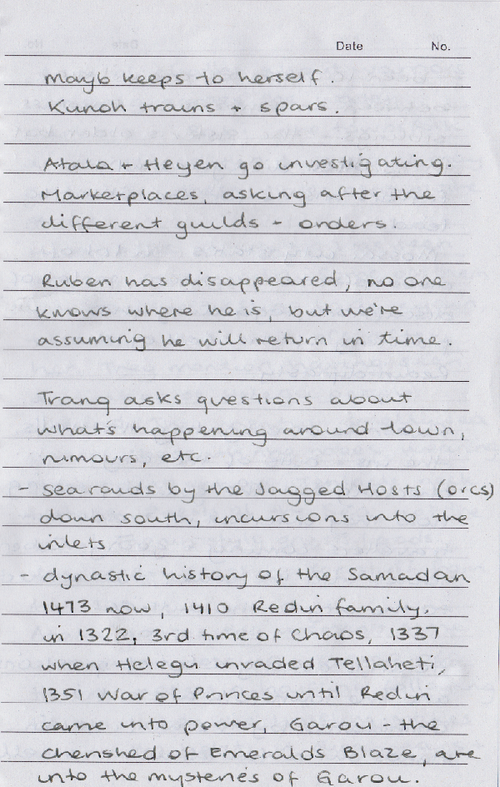 Date No.
Mayb keeps to herself.
Kunoh trains + spars.
Atala + Heyen go investigating.
Marketplaces, asking after the
different guilds - orders.
Ruben has disappeared, no one
knows where he is, but we're
assuming he will return in time.
Trang asks questions about
what's happening around town,
rumours, etc.
- sea raids by the Jagged Hosts (orcs)
down south, incursions into the
inlets
- dynastic history of the Samadan
1473 now, 1410 Redin family.
in 1322, 3rd time of Chaos, 1337
when Helegu invaded Tellaheti,
1351 War of Princes until Redin
came into power, Garou - the
cherished of Emeralds Blaze, are
into the mysteries of Garou.